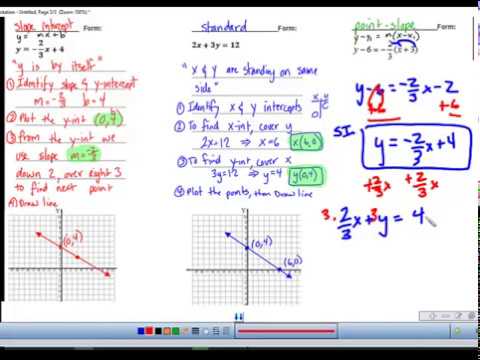 slope intercept Form:
y = mx + b
y = -2/3 x + 4
"y is by itself"
① Identify slope & y-intercept
m = -2/3 b = 4
② Plot the y-int (0,4)
③ From the y-int we
use slope m = -2/3
down 2, over right 3
to find next point
④ Draw line
(0,4)
standard Form:
2x + 3y = 12
"x & y are standing on same
side"
① Identify x & y intercepts
x y
0
0
② To find x-int, cover y
2x = 12 → x = 6 x(6,0)
③ To find y-int, cover x
3y = 12 → y = 4 y(0,4)
④ Plot the points, then Draw line
(0,4)
(6,0)
point-slope Form:
y - y₁ = m(x - x₁)
y - 6 = -2/3 (x + 3)
y - 6 = -2/3 x - 2
+6 +6
SI
y = -2/3 x + 4
+2/3 x +2/3 x
3· 2/3 x + 3 y = 4